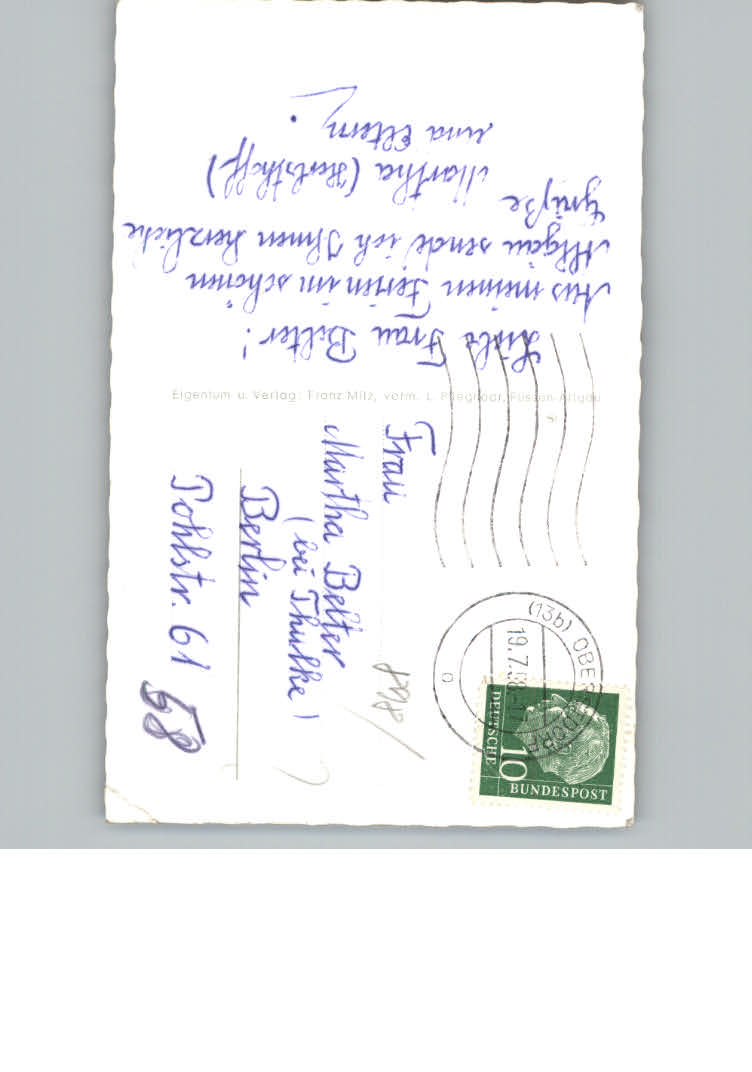 Liebe Frau Belter!
Aus meinen Ferien im schönen
Allgäu sende ich Ihnen herzliche
Grüße
Martha (Herbsthoff)
und Eltern.
Eigentum u. Verlag: Franz Milz, vorm. L. Füssen-Allgäu
Frau
Martha Belter
(bei Thulke)
Berlin
Pohlstr. 61
58
(13b) OBE DORF
19.7.58
DEUTSCHE
10
BUNDESPOST